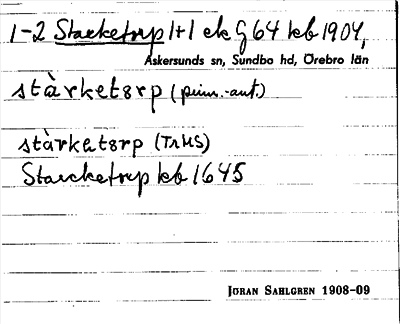 1-2 Starketorp 1+1 ek G 64 kb 1904,
Askersunds sn, Sundbo hd, Örebro län
stàrketərp (prim.-ant.)
stàrketərp (TrHS)
Starcketorp kb 1645
JÖRAN SAHLGREN 1908-09